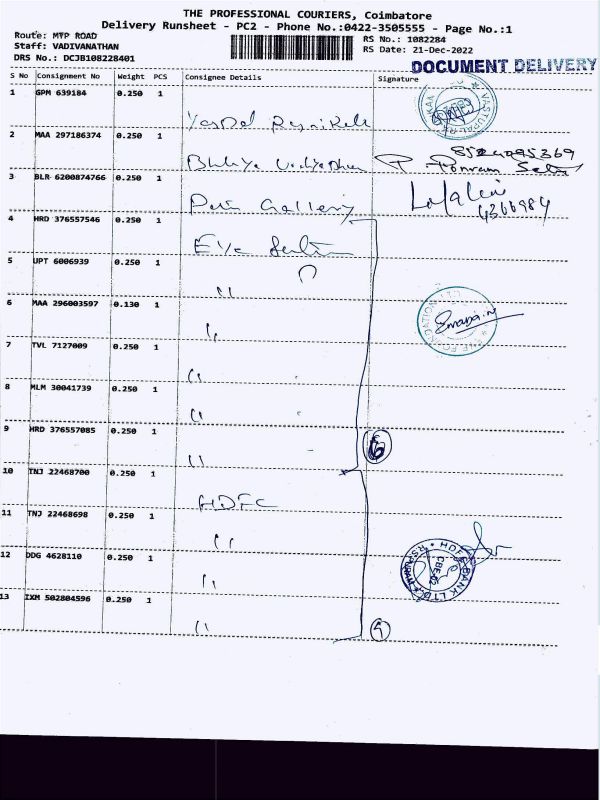 THE PROFESSIONAL COURIERS, Coimbatore
Delivery Runsheet - PC2 - Phone No.:0422-3505555 - Page No.:1
Route: MTP ROAD
RS No.: 1082284
Staff: VADIVANATHAN
RS Date: 21-Dec-2022
DRS No.: DCJB108228401
DOCUMENT DELIVERY
S No Consignment No Weight PCS Consignee Details Signature
1 GPM 639184 0.250 1
2 MAA 297186374 0.250 1
8524095369
3 BLR 6200874766 0.250 1 Gallery
4 HRD 376557546 0.250 1 Eye
5 UPT 6006939 0.250 1 "
6 MAA 296003597 0.130 1 "
7 TVL 7127009 0.250 1 "
8 MLM 30041739 0.250 1 "
9 HRD 376557085 0.250 1 "
6
10 TNJ 22468700 0.250 1 HDFC
11 TNJ 22468698 0.250 1 "
12 DDG 4628110 0.250 1 "
HDFC BANK LTD
13 IXM 502804596 0.250 1 "